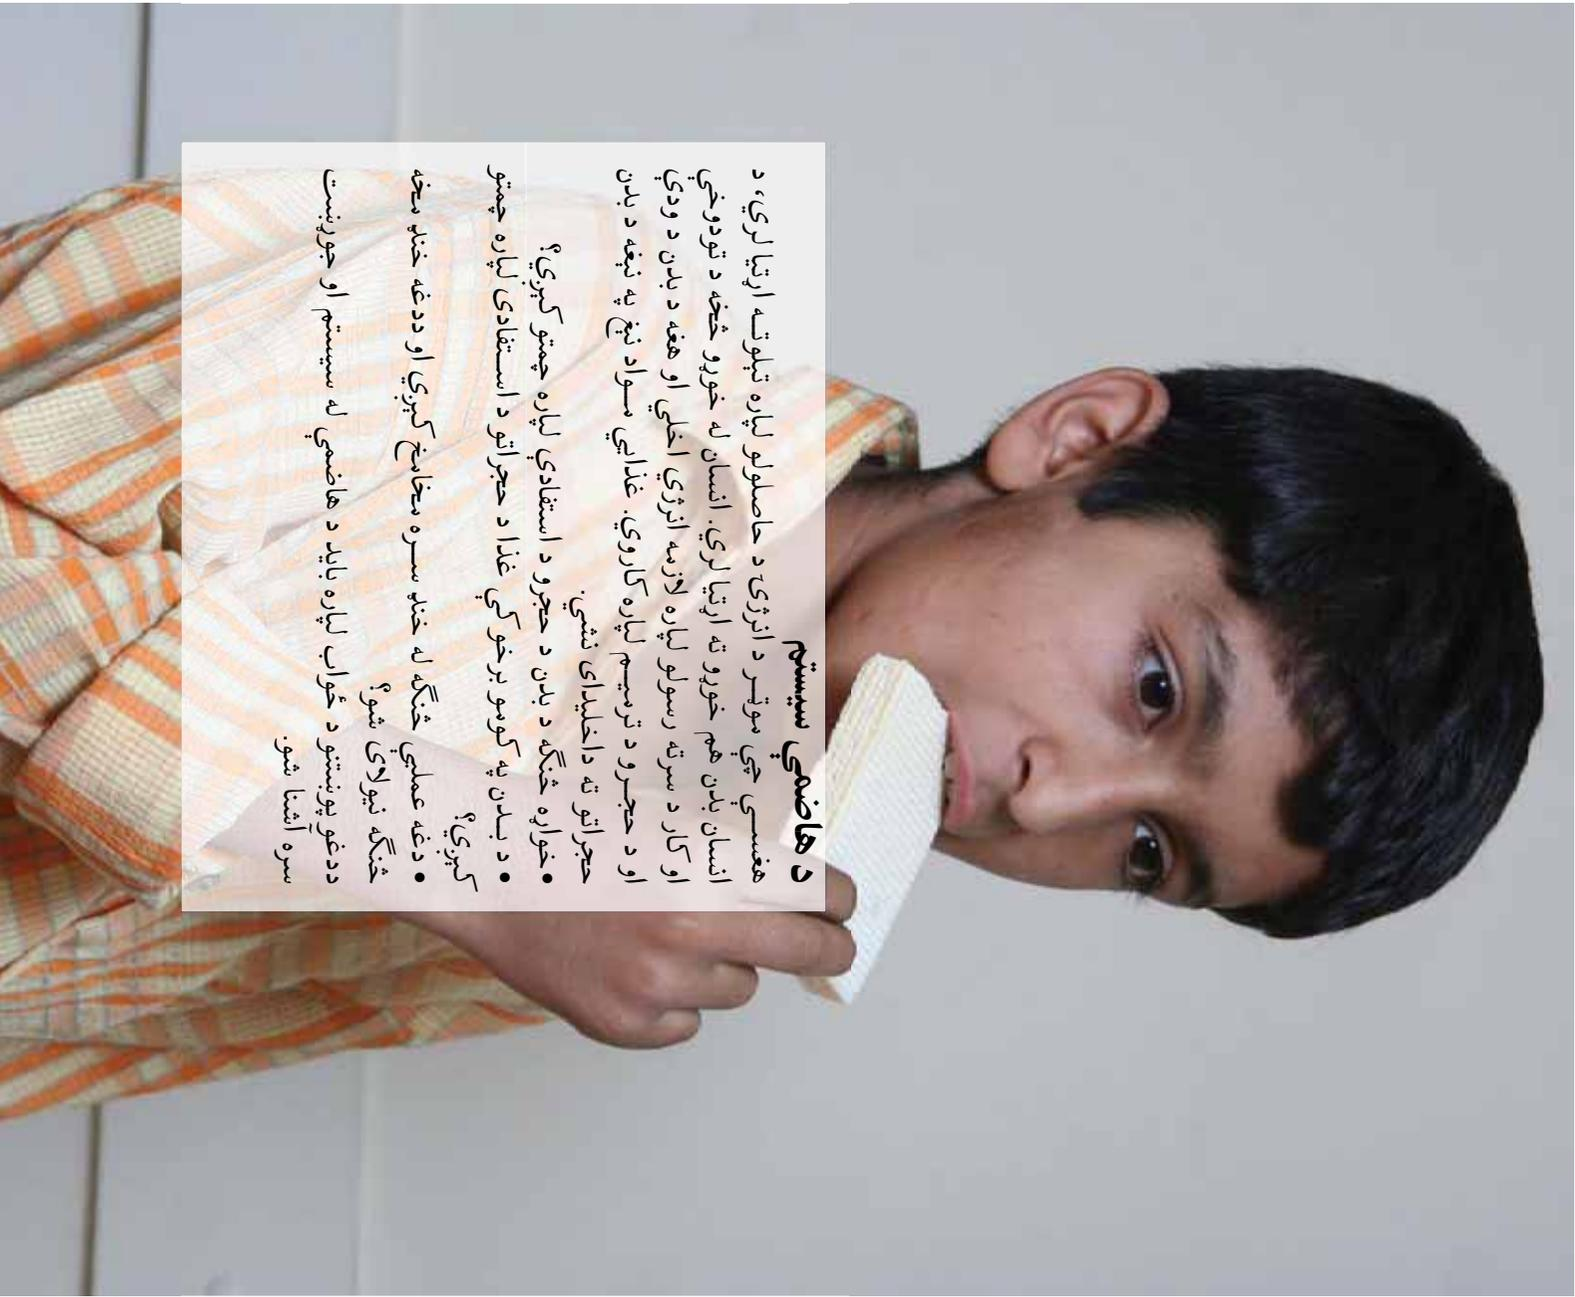 د هاضمې سیستم
هغســې چې موټــر د انرژۍ د حاصلولو لپاره تېلوتــه اړتیا لري، د
انسان بدن هم خوړو ته اړتیا لري. انسان له خوړو څخه د تودوخې
او کار د سرته رسولو لپاره لازمه انرژي اخلي او هغه د بدن د ودې
او د حجــرو د ترمیــم لپاره کاروي. غذایي مــواد نېغ په نېغه د بدن
حجراتو ته داخلیدای نشي.
• خواړه څنګه د بدن د حجرو د استفادې لپاره چمتو کیږي؟
• د بــدن په کومو برخو کې غذا د حجراتو د اســتفادی لپاره چمتو
کیږي؟
• دغه عملیې څنګه له خنډ ســره مخامخ کیږي او ددغه خنډ مخه
څنګه نیولای شو؟
ددغو پوښتنو د ځواب لپاره باید د هاضمې له سیستم او جوړښت
سره آشنا شو.